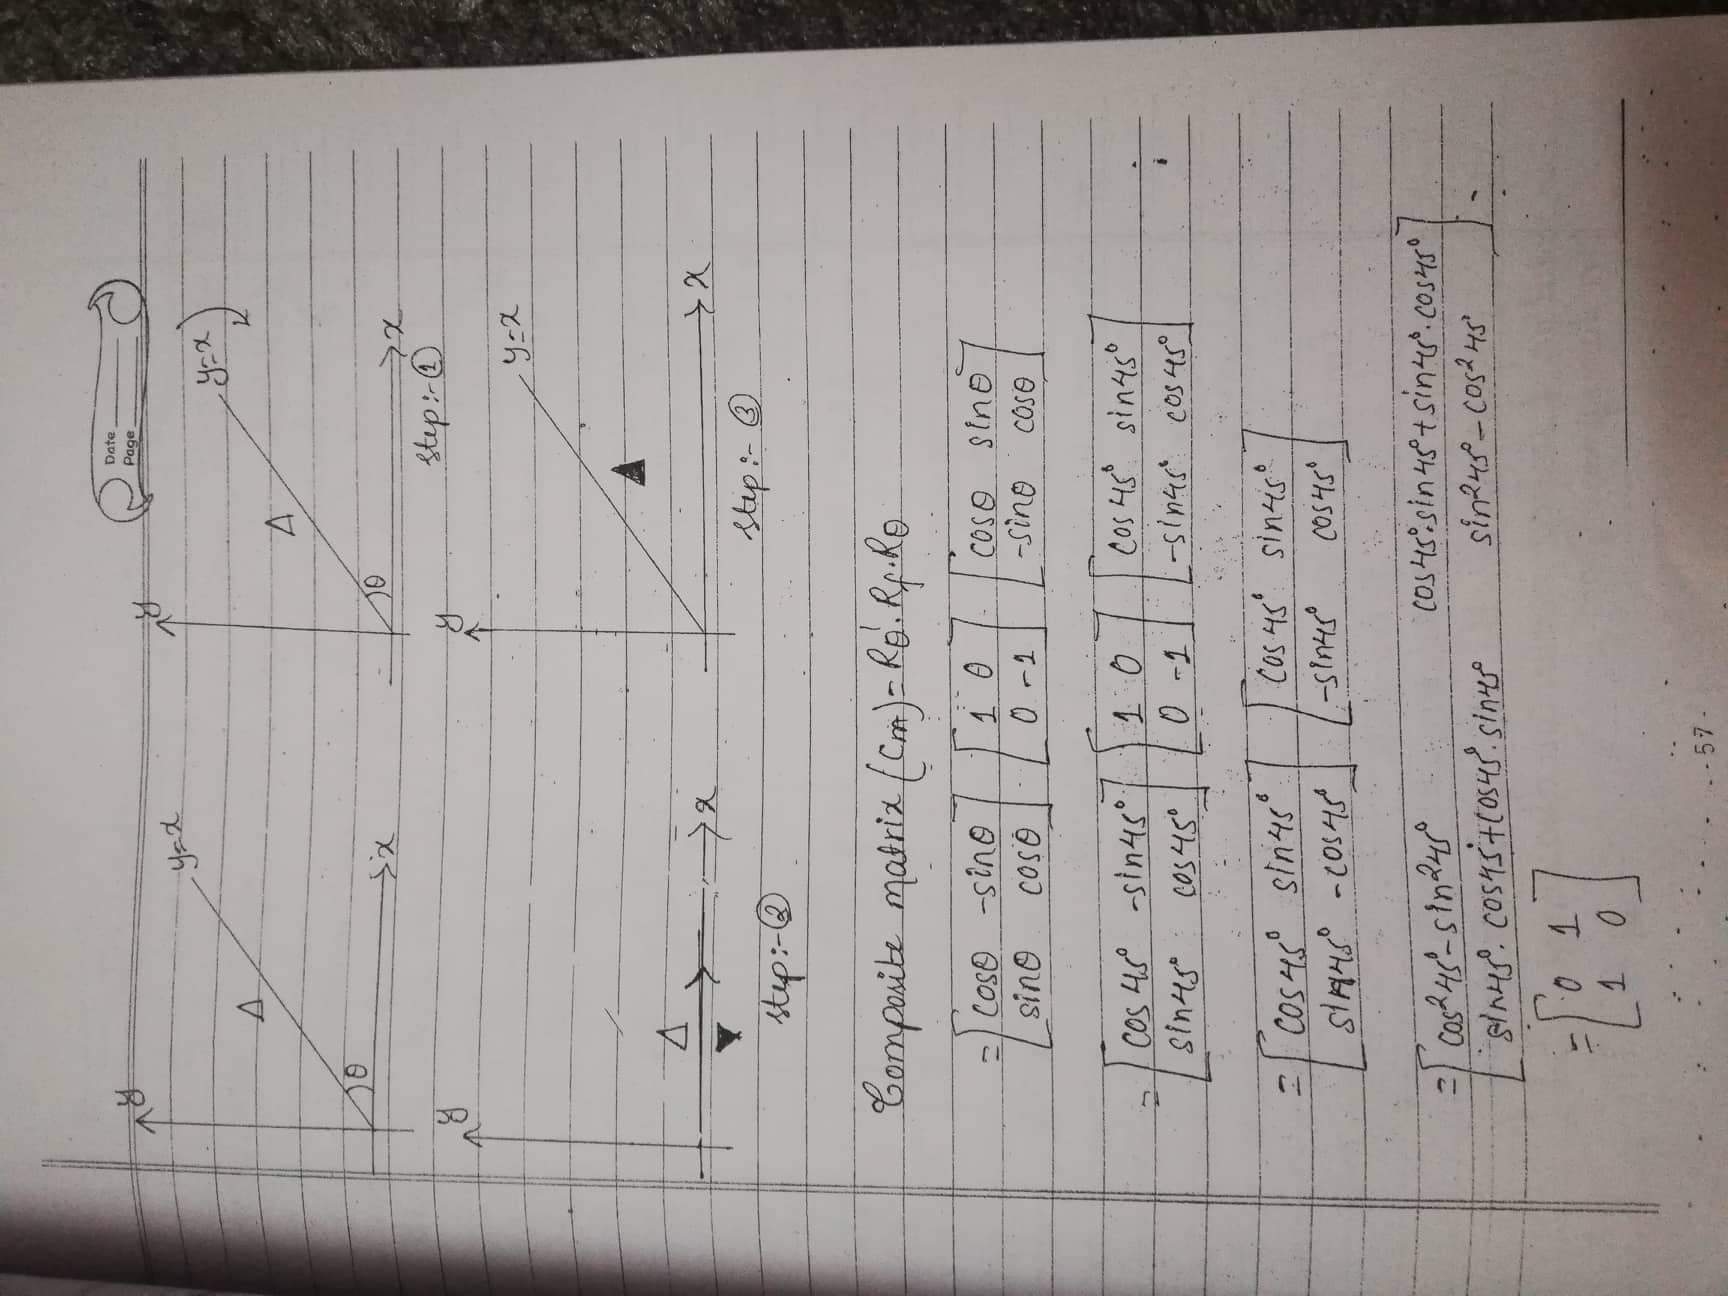 Date
Page
y
y=x
Δ
θ
x
y
y=x
Δ
θ
x
step:-①
y
Δ
x
step:-②
y
y=x
x
step:- ③
Composite matrix (Cm) = Rθ'. Rf. Rθ
= [cosθ -sinθ] [1 0] [cosθ sinθ]
[sinθ cosθ] [0 -1] [-sinθ cosθ]
= [cos45° -sin45°] [1 0] [cos45° sin45°]
[sin45° cos45°] [0 -1] [-sin45° cos45°]
= [cos45° sin45°] [cos45° sin45°]
[sin45° -cos45°] [-sin45° cos45°]
= [cos²45° - sin²45° cos45°.sin45° + sin45°.cos45°]
[sin45°. cos45° + cos45°. sin45° sin²45° - cos²45°]
= [0 1]
[1 0]
-57-